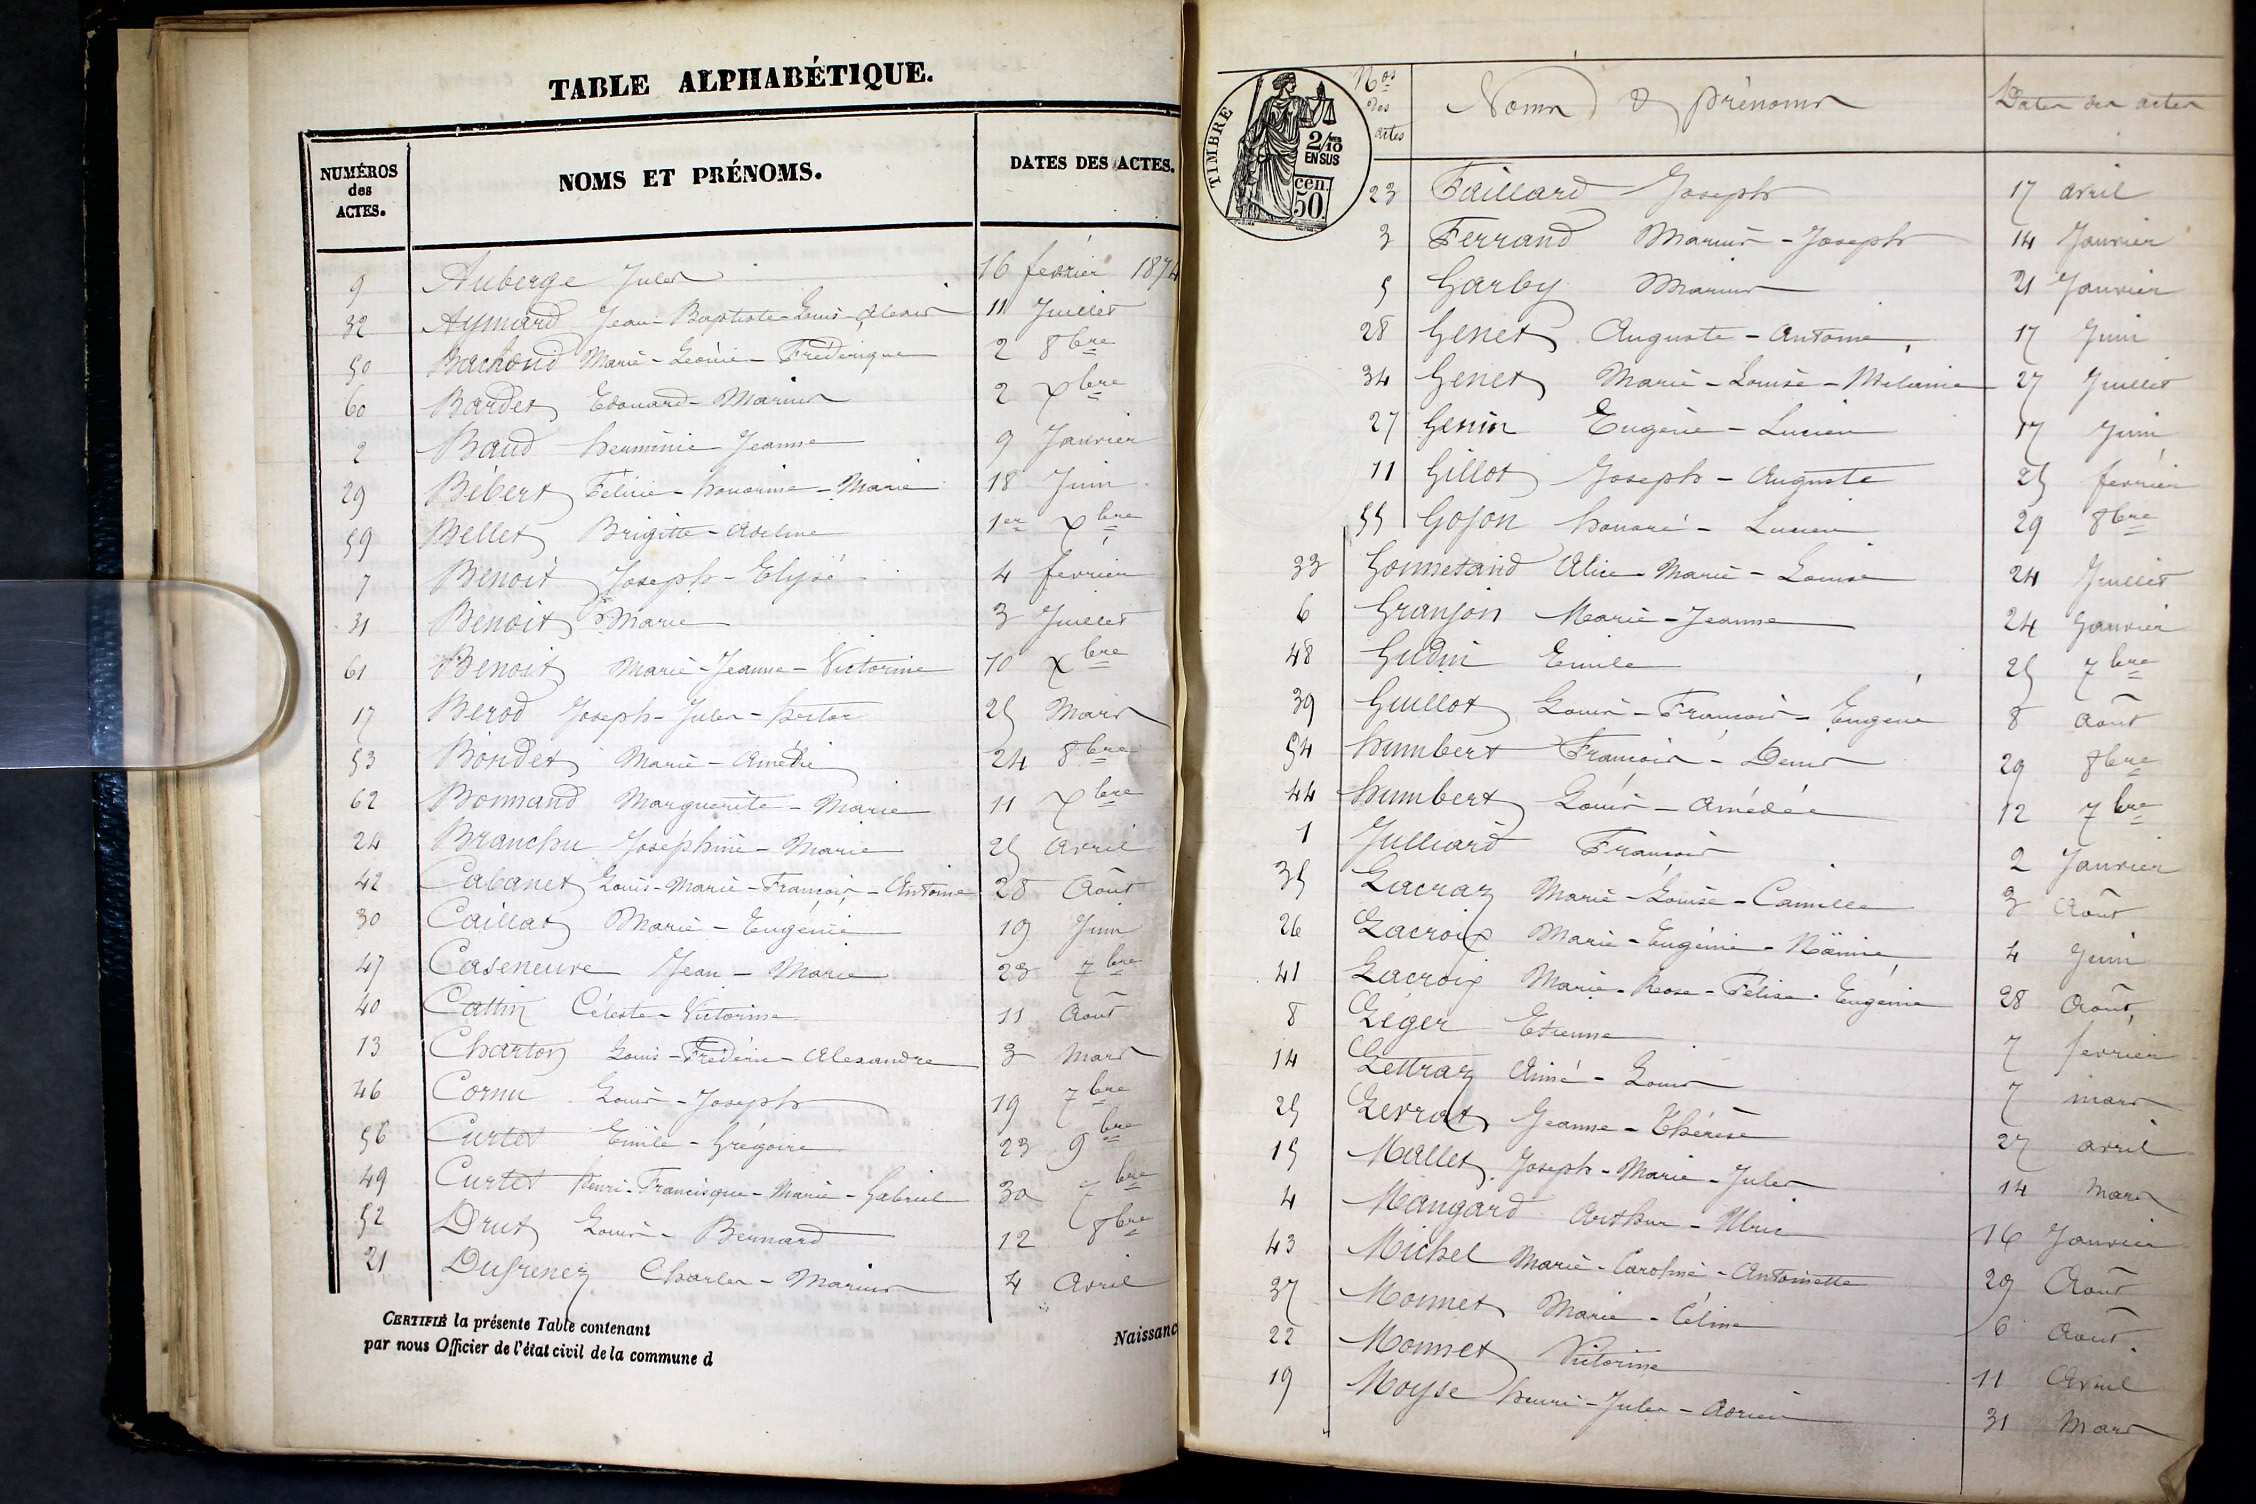 TABLE ALPHABÉTIQUE.
NUMÉROS des ACTES. NOMS ET PRÉNOMS. DATES DES ACTES.
9 Auberge Jules 16 février 1874
32 Aymard Jean-Baptiste-Louis-Alexis 11 Juillet
50 Bachoud Marie-Léonie-Frédérique 2 8bre
60 Bardet Edouard-Marius 2 Xbre
2 Baud herminie-Jeanne 9 Janvier
29 Bébert Félicie-honorine-Marie 18 Juin
59 Bellet Brigitte-Adeline 1er Xbre
7 Benoit Joseph-Elysé 4 février
31 Benoit Marie 3 Juillet
61 Benoit Marie-Jeanne-Victorine 10 Xbre
17 Berod Joseph-Jules-hector 25 Mars
53 Bondet Marie-Amélie 24 8bre
62 Bonnand Marguerite-Marie 11 Xbre
24 Branchu Joséphine-Marie 25 Avril
42 Cabanet Louis-Marie-François-Antoine 28 Août
30 Caillat Marie-Eugénie 19 Juin
47 Caseneuve Jean-Marie 23 7bre
40 Cattin Céleste-Victorine 11 Août
13 Charton Louis-Frédéric-Alexandre 3 Mars
46 Cornu Louis-Joseph 19 7bre
56 Curtet Emile-Grégoire 23 9bre
49 Curtet henri-Francisque-Marie-Gabriel 30 7bre
52 Drut Louis-Bernard 12 8bre
21 Dufrenez Charles-Marius 4 Avril
CERTIFIÉ la présente Table contenant Naissanc
par nous Officier de l'état civil de la commune d
TIMBRE 2/10 EN SUS 50 cen.
Nos des actes Noms & prénoms Dates des actes
23 Faillard Joseph 17 avril
3 Ferrand Marius-Joseph 14 Janvier
5 Garby Marius 21 Janvier
28 Genet Auguste-Antoine 17 Juin
34 Genet Marie-Louise-Mélanie 27 Juillet
27 Genin Eugène-Lucien 17 Juin
11 Gillot Joseph-Auguste 25 février
55 Gojon honoré-Lucien 29 8bre
33 Gonnetand Alice-Marie-Louise 24 Juillet
6 Granjon Marie-Jeanne 24 Janvier
48 Gudin Emile 25 7bre
39 Guillot Louis-François-Eugène 8 Août
54 humbert François-Denis 29 8bre
44 humbert Louis-Amédée 12 7bre
1 Julliard François 2 Janvier
35 Lacraz Marie-Louise-Camille 3 Août
26 Lacroix Marie-Eugénie 4 Juin
41 Lacroix Marie-Rose-Félise-Eugénie 28 Août
8 Léger Etienne 7 février
14 Lettraz Aimé-Louis 7 mars
25 Levrat Jeanne-Thérèse 27 avril
15 Mallet Joseph-Marie-Jules 14 Mars
4 Mangard Arthur-Ulric 16 Janvier
43 Michel Marie-Caroline-Antoinette 29 Août
37 Monnet Marie-Céline 6 Août
22 Monnet Victorine 11 Avril
19 Moyse henri-Jules-Adrien 31 Mars